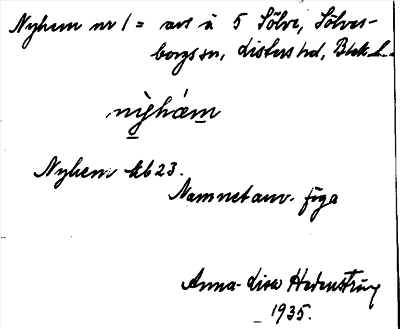 Nyhem nr 1 = avs å 5 Sölve, Sölves-
borgs sn, Listers hd, Blek. l.
nỳhém
Nyhem kb 23.
Namnet anv. föga
Anna-Lisa Hedenström
1935.